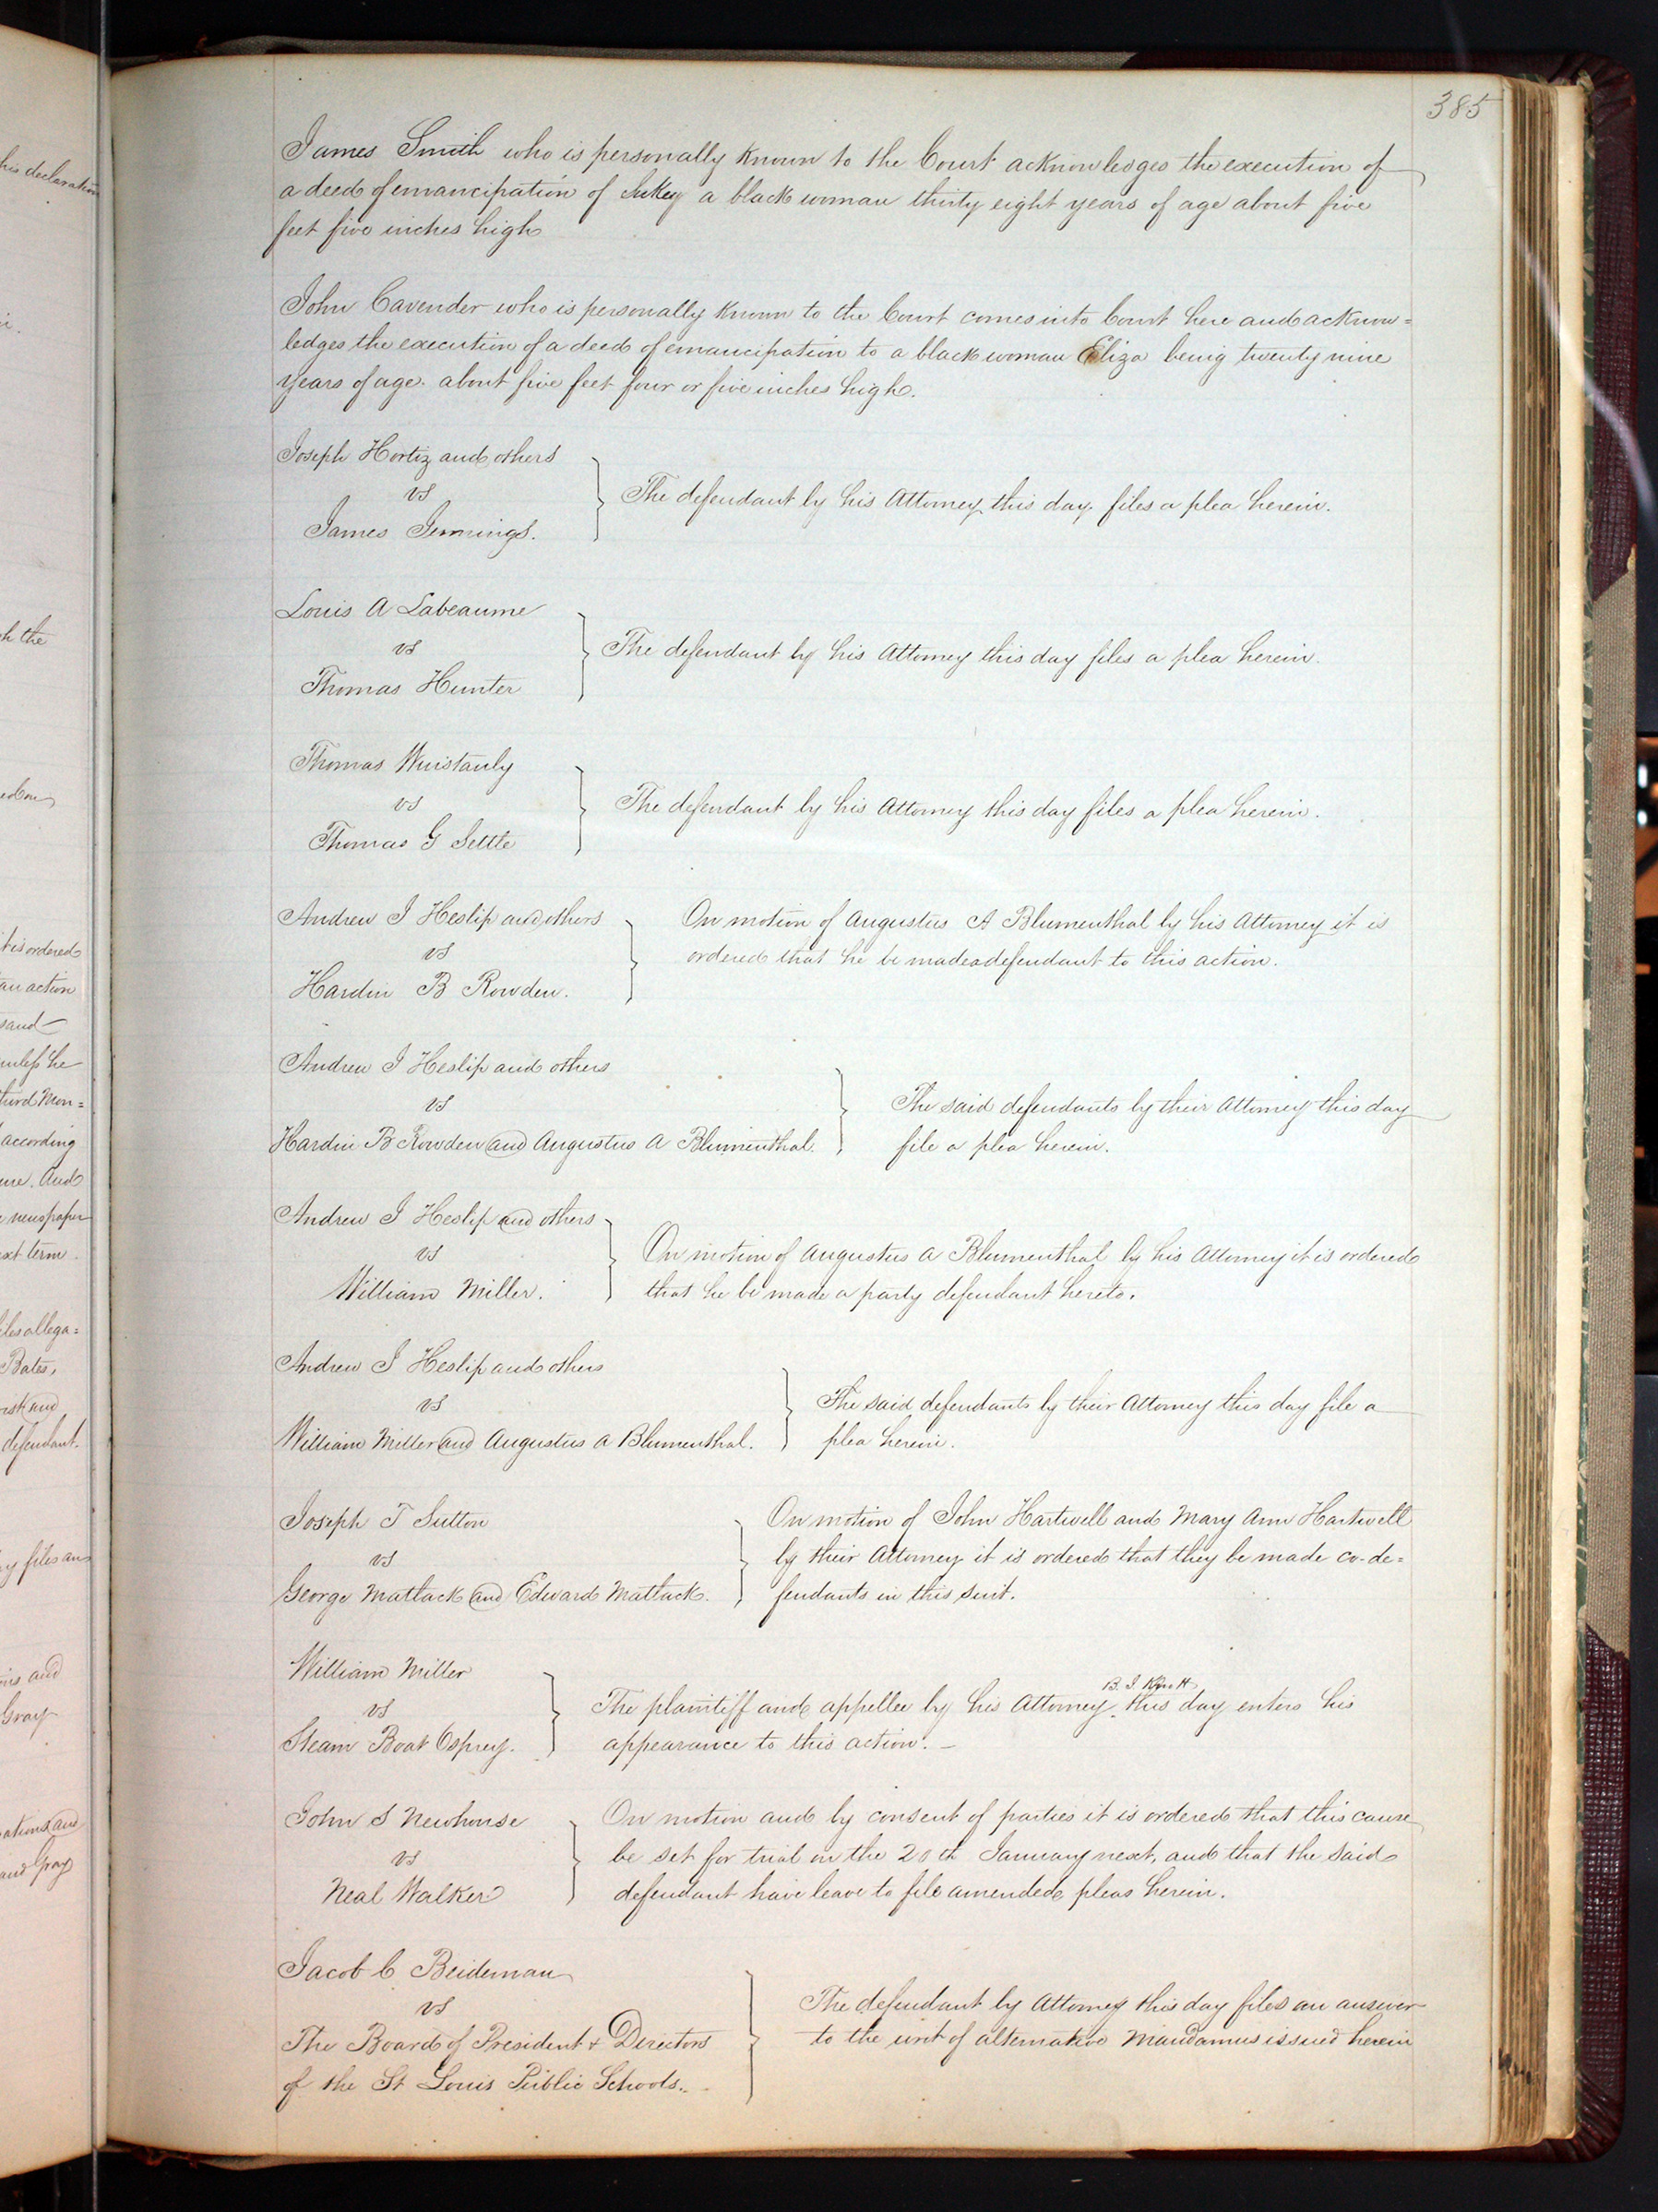 385
James Smith who is personally known to the Court acknowledges the execution of
a deed of emancipation of Sukey a black woman thirty eight years of age about five
feet five inches high
John Cavender who is personally known to the Court comes into Court here and acknow=
ledges the execution of a deed of emancipation to a black woman Eliza being twenty nine
years of age. about five feet four or five inches high.
Joseph Hortiz and others
vs
James Jennings.
The defendant by his Attorney this day files a plea herein.
Louis A Labeaume
vs
Thomas Hunter
The defendant by his Attorney this day files a plea herein.
Thomas Winstanly
vs
Thomas G Settle
The defendant by his Attorney this day files a plea herein.
Andrew J Heslip and others
vs
Hardin B Rowden.
On motion of Augustus A Blumenthal by his Attorney it is
ordered that he be made a defendant to this action.
Andrew J Heslip and others
vs
Hardin B Rowden and Augustus A Blumenthal.
The said defendants by their Attorney this day
file a plea herein.
Andrew J Heslip and others
vs
William Miller.
On motion of Augustus A Blumenthal by his Attorney it is ordered
that he be made a party defendant hereto.
Andrew J Heslip and others
vs
William Miller and Augustus A Blumenthal.
The said defendants by their Attorney this day file a
plea herein.
Joseph T Sutton
vs
George Matlack and Edward Matlack.
On motion of John Hartwell and Mary Ann Hartwell
by their Attorney it is ordered that they be made co-de=
fendants in this suit.
William Miller
vs
Steam Boat Osprey.
B. I.
The plaintiff and appellee by his Attorney this day enters his
appearance to this action. –
John S Newhouse
vs
Neal Walker
On motion and by consent of parties it is ordered that this cause
be set for trial on the 20th January next, and that the said
defendant have leave to file amended pleas herein.
Jacob C Beideman
vs
The Board of President & Directors
of the St Louis Public Schools.
The defendant by Attorney this day files an answer
to the writ of alternative Mandamus issued herein
his declaration
h the
it is ordered
an action
said
unless he
third Mon=
according
newspaper
ext term.
files allega=
Bates,
defendant.
y files an
and
Gray
and
and Gray